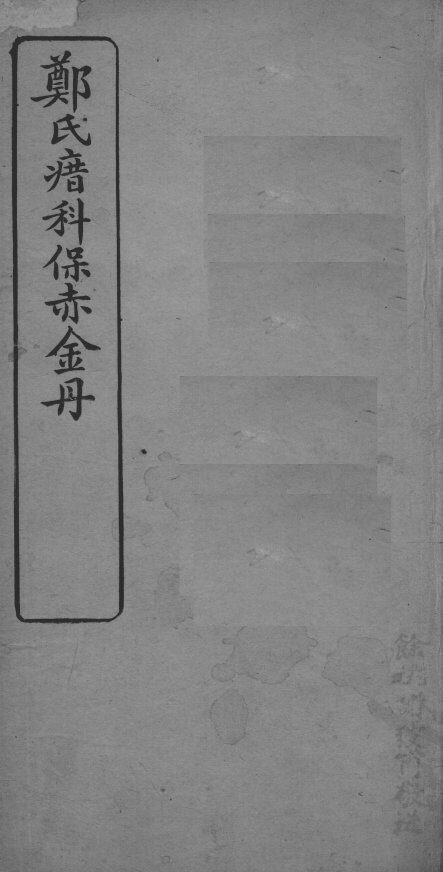 鄭氏瘄科保赤金丹